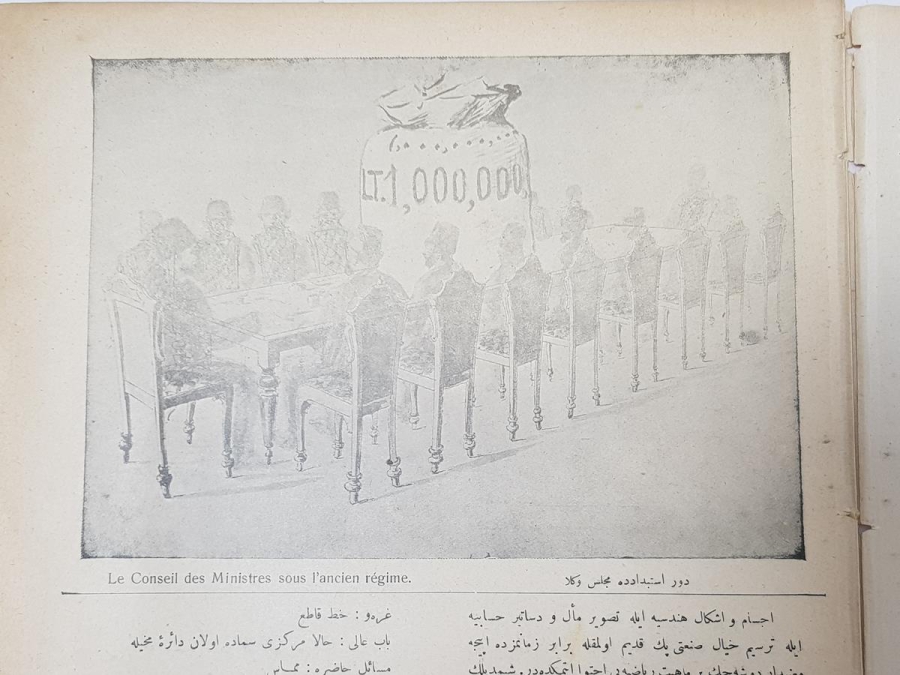 LT.1,000,000
Le Conseil des Ministres sous l'ancien régime.
دور استبدادده مجلس وكلا
اجسام و اشكال هندسيه ايله تصوير مأل و دساتير حسابيه
ايله ترسيم خيال صنعتى پك قديم اولمقله برابر زمانمزده ايجه
غره‌و : خط قاطع
باب عالى : حالا مركزى سماده اولان دائرۀ مخيله
مسائل حاضره : مماس